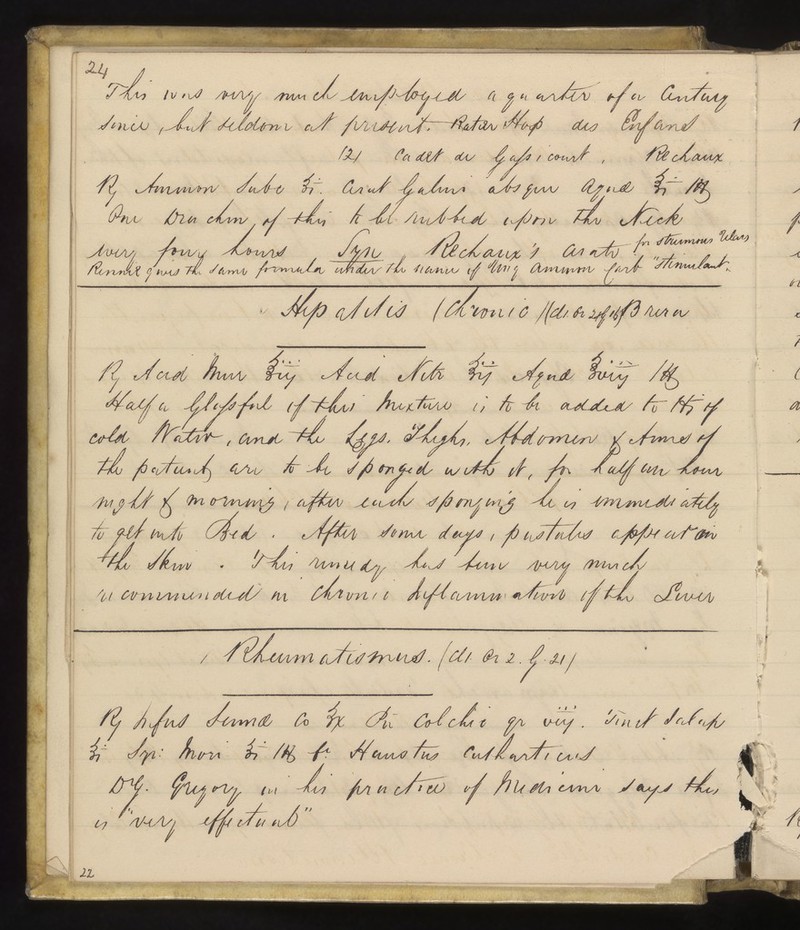 24
This was very much employed a quarter of a Century
since, but seldom at present. Ratier Hop des Enfans
121 Cadet de Gassicourt. Rechaux
℞ Ammon Subc ʒi. Cerat Galeni absque Aquâ ℥i M
One Drachm of this to be rubbed upon the Neck
every four hours Syn Rechaux's Cerate for strumous Ulcers
Rennie gives the same formula under the name of "Ung Ammon Carb "Stimulant".
Hepatitis (Chronic) Brera
℞ Acid Mur ℥iij Acid Nitr ℥ij Aquæ ℥viij M
Half a Glassful of this Mixture is to be added to of
cold Water, and the Legs. Thighs. Abdomen & Arms of
the patient, are to be sponged with it, for half an hour
night & morning, after each sponging he is immediately
to get into Bed. After some days, pustules appear on
the Skin. This remedy has been very much
recommended in Chronic Inflammation of the Liver
Rheumatismus. (Cl 1 Or 2. G. 21)
℞ Infus Sennæ Co ℥x Pulv Colchic gr viij. Tinct Jalap
ʒi Syr: Mori ʒi M ft Haustus Catharticus
Dr G. Gregory in his practice of Medicine says this
is "very effectual"
22